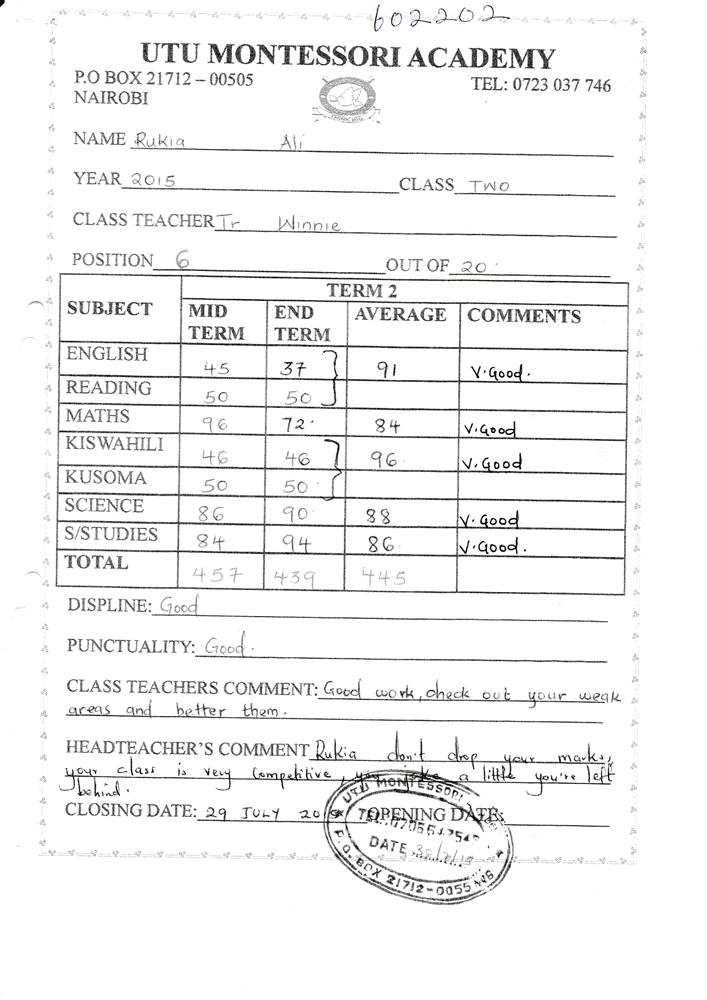 602202
UTU MONTESSORI ACADEMY
P.O BOX 21712 – 00505 TEL: 0723 037 746
NAIROBI
NAME Rukia Ali
YEAR 2015 CLASS TWO
CLASS TEACHER Tr Winnie
POSITION 6 OUT OF 20
SUBJECT TERM 2
MID TERM END TERM AVERAGE COMMENTS
ENGLISH 45 37 91 V.Good.
READING 50 50
MATHS 96 72 84 V.Good
KISWAHILI 46 46 96 V.Good
KUSOMA 50 50
SCIENCE 86 90 88 V.Good
S/STUDIES 84 94 86 V.Good.
TOTAL 457 439 445
DISPLINE: Good
PUNCTUALITY: Good.
CLASS TEACHERS COMMENT: Good work, check out your weak
areas and better them.
HEADTEACHER'S COMMENT Rukia don't drop your marks,
your class is very competitive, you joke a little you're left
behind.
CLOSING DATE: 29 JULY OPENING DATE:
UTU MONTESSORI
DATE
P.O. BOX 21712-0055 NRB